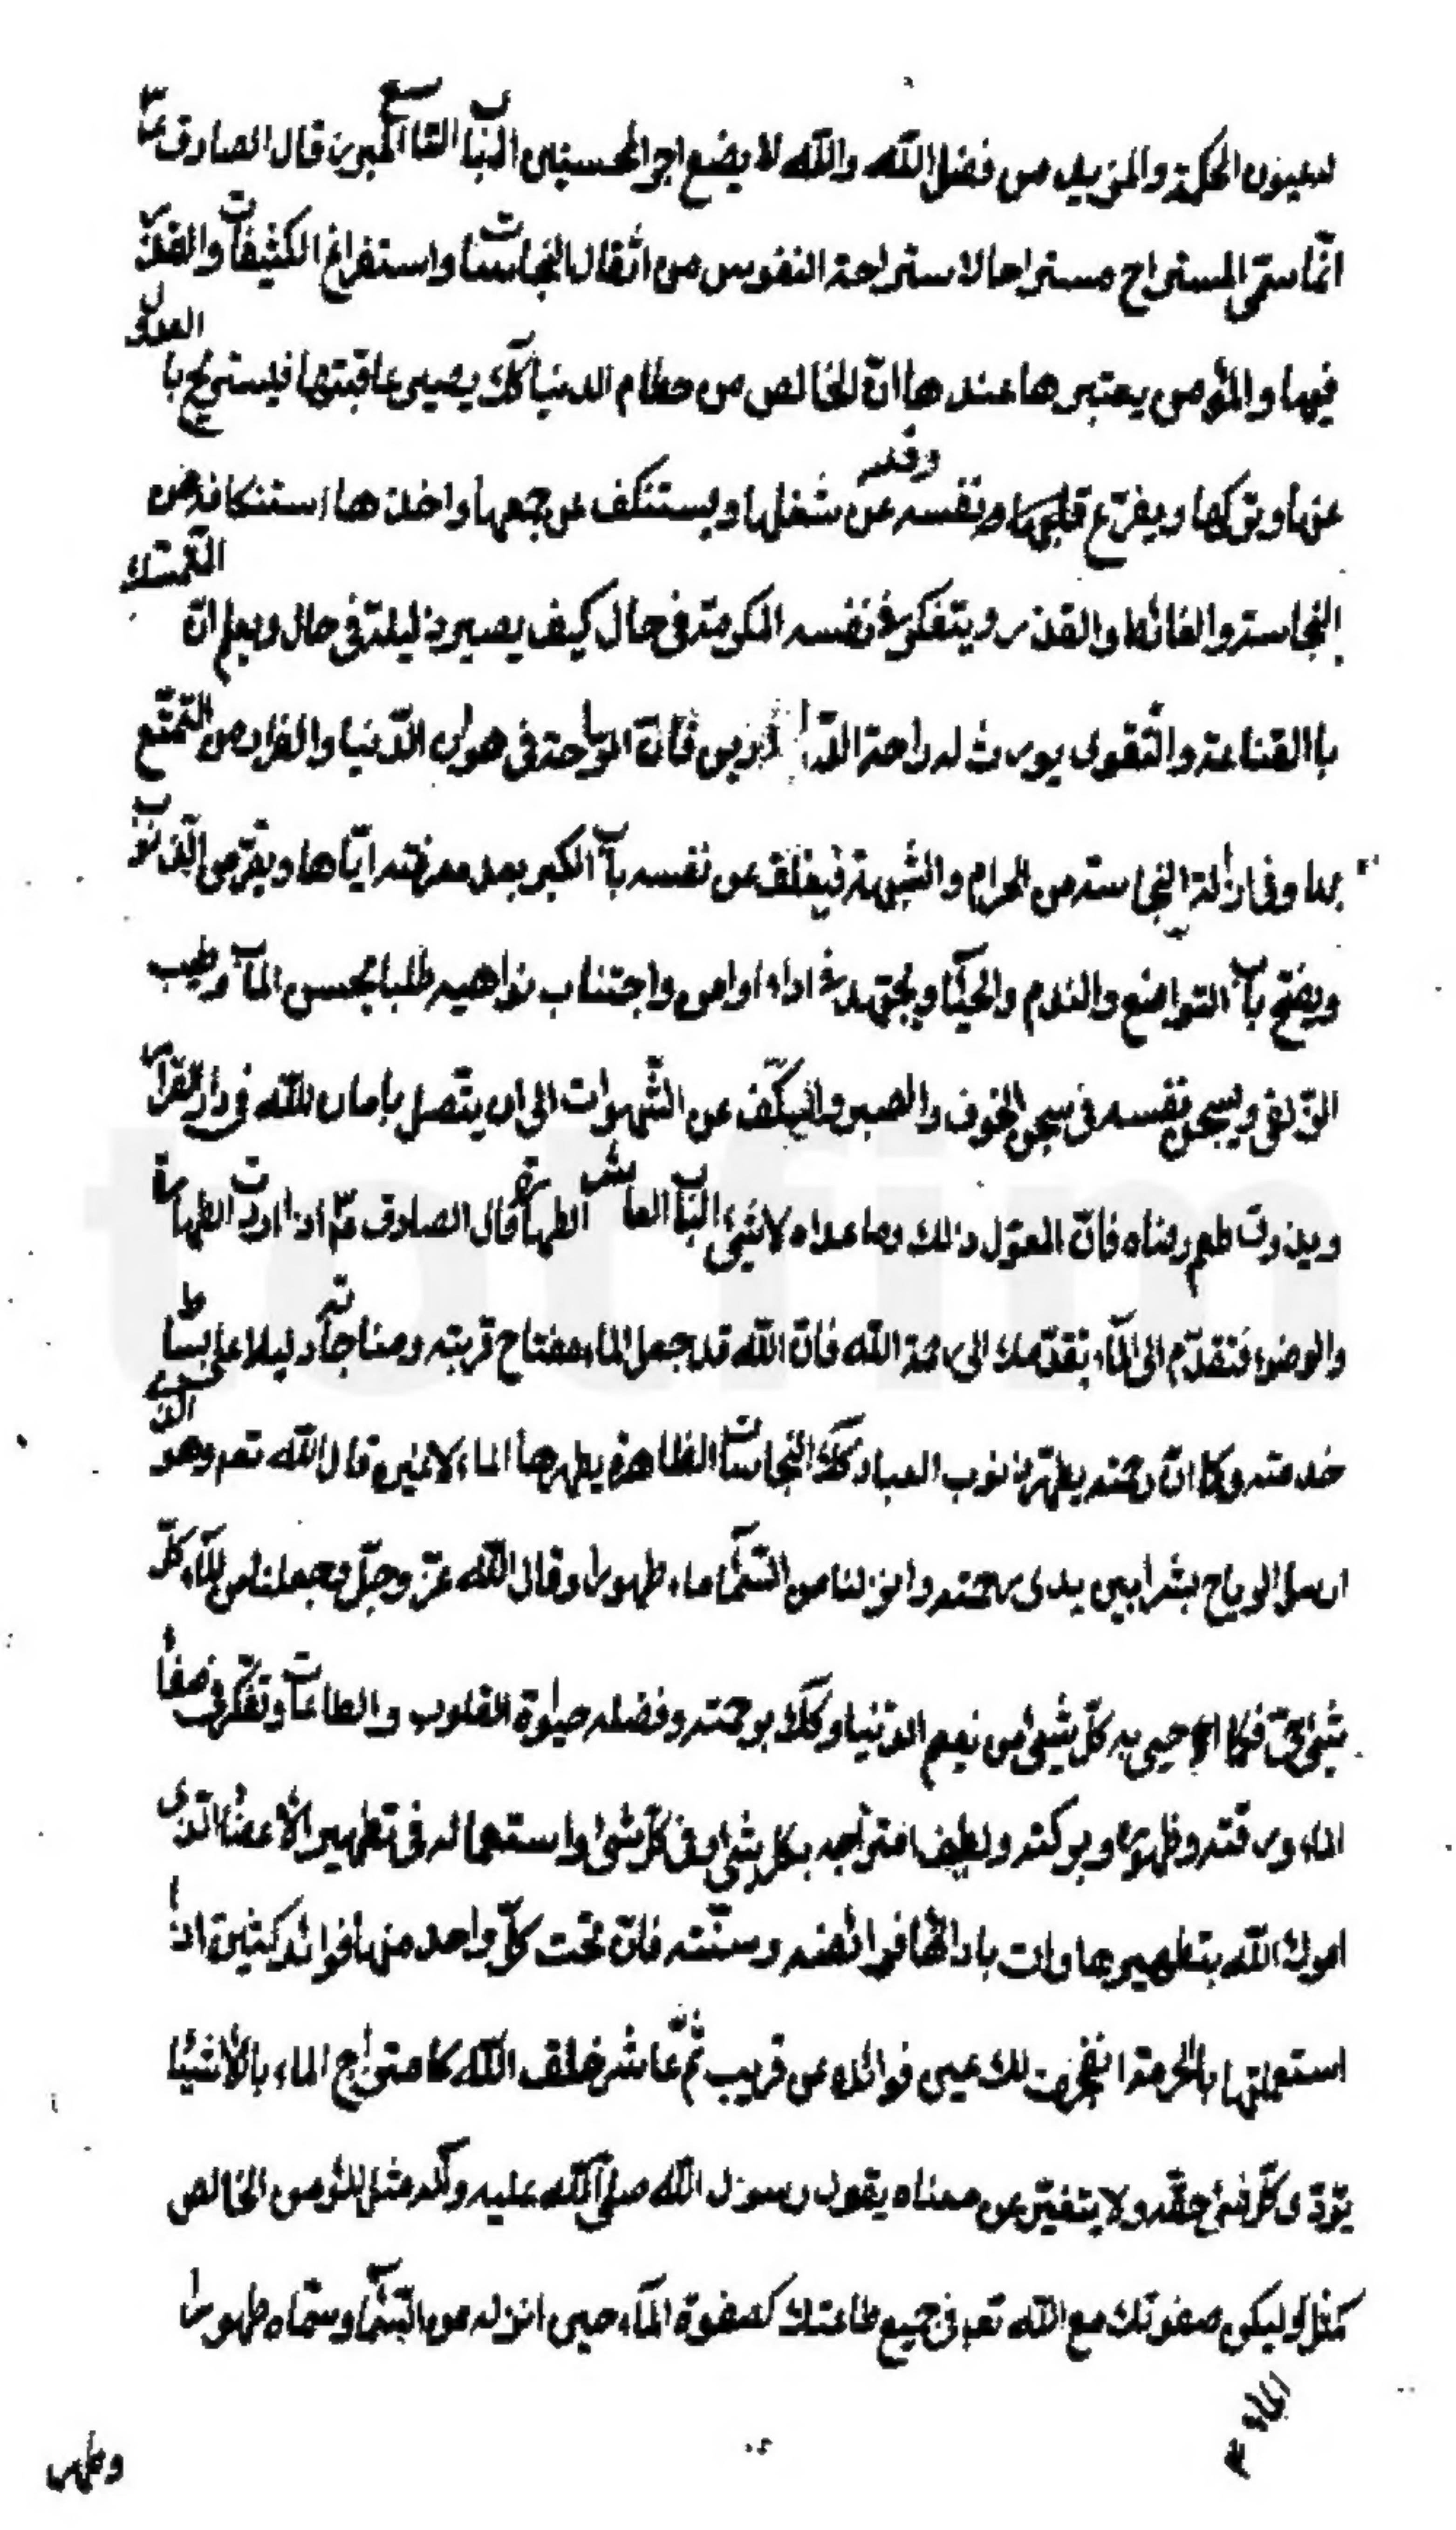 لعيون الحكمة والمزيد من فضل الله والله لا يضع اجر المحسنين الباب التاسع المبرز قال الصادق ع
انّما سمّى المستراح مستراحا لاستراحة النفوس من اثقال النجاسات واستفراغ الكثيفات والقذر
فيها والمؤمن يعتبر ها عندها انّ الخالص من حطام الدنيا كك يصير عاقبتها فيستريح با العدول
عنها وتركها ويفرّغ قلبه ونفسه عن شغلها ويستنكف عن جمعها واخذ ها استنكافه من
النجاسة والغائط والقذر ويتفكر في نفسه المكرمة فى حال كيف يصير ذليلة فى حال ويعلم انّ التمسّك
با القناعة والتقوى يورث له راحة الدّارين فانّ الراحة فى هوان الدّنيا والفراد من التمتّع
بها وفى ازالة النجاسة من الحرام والشبهة فيغلق عن نفسه باب الكبر بعد معرفته ايّاها ويفرّ من الذنوب
ويفتح باب التواضع والندم والحيآ ويجتهد فى اداء اوامره واجتناب نواهيه طلبا لحسن المآب وطيب
الزّلفى ويسجن نفسه فى سجن الخوف والصبر والكفّ عن الشّهوات الى ان يتّصل بامان الله فى دار القرار
ويذوق طعم رضاه فانّ المعوّل ذلك وما عداه لا شئ الباب العاشر الطهارة قال الصادق ع اذا اردت الطهارة
والوضوء فتقدّم الى المآء تقدّمك الى رحمة الله فانّ الله قد جعل الماء مفتاح قربته ومناجاته ودليلا على بساط
خدمته وكما انّ رحمته يطهّر ذنوب العباد كك النجاسات الظاهرة يطهرها الماء لا غيره قال الله تعم وهو الذى
ارسل الرياح بشرا بين يدى رحمته وانزلنا من السّمآ ماء طهورا وقال الله عزّ وجلّ وجعلنا من المآء كلّ
شئ حىّ فكما احيى به كلّ شئ من نعيم الدّنيا وكك برحمته وفضله حيوة القلوب والطاعات وتفكّر فى صفآ
الماء ورقته وطهوره وبركته ولطيف امتزاجه بكل شئ وفى كلّ شئ واستعماله فى تطهير الأعضآ الّذى
امرك الله بتطهيرها وات بادائها فرائضه وسنّته فانّ تحت كلّ واحد منها فوائد كثيرة اذا
استعملتها بالحرمة انفجرت لك عين فوائده عن قريب ثمّ عاشر خلق الله كامتزاج الماء بالأشيآ
يؤدّى كلّ شئ حقّه ولا يتغيّر عن معناه يقول رسول الله صلّى الله عليه وآله مثل المؤمن الخالص
كمثل وليكن صفوتك مع الله تعم فى جميع طاعتك كصفوة المآء حين انزله من السّمآ وسمّاه طهورا
وطهر